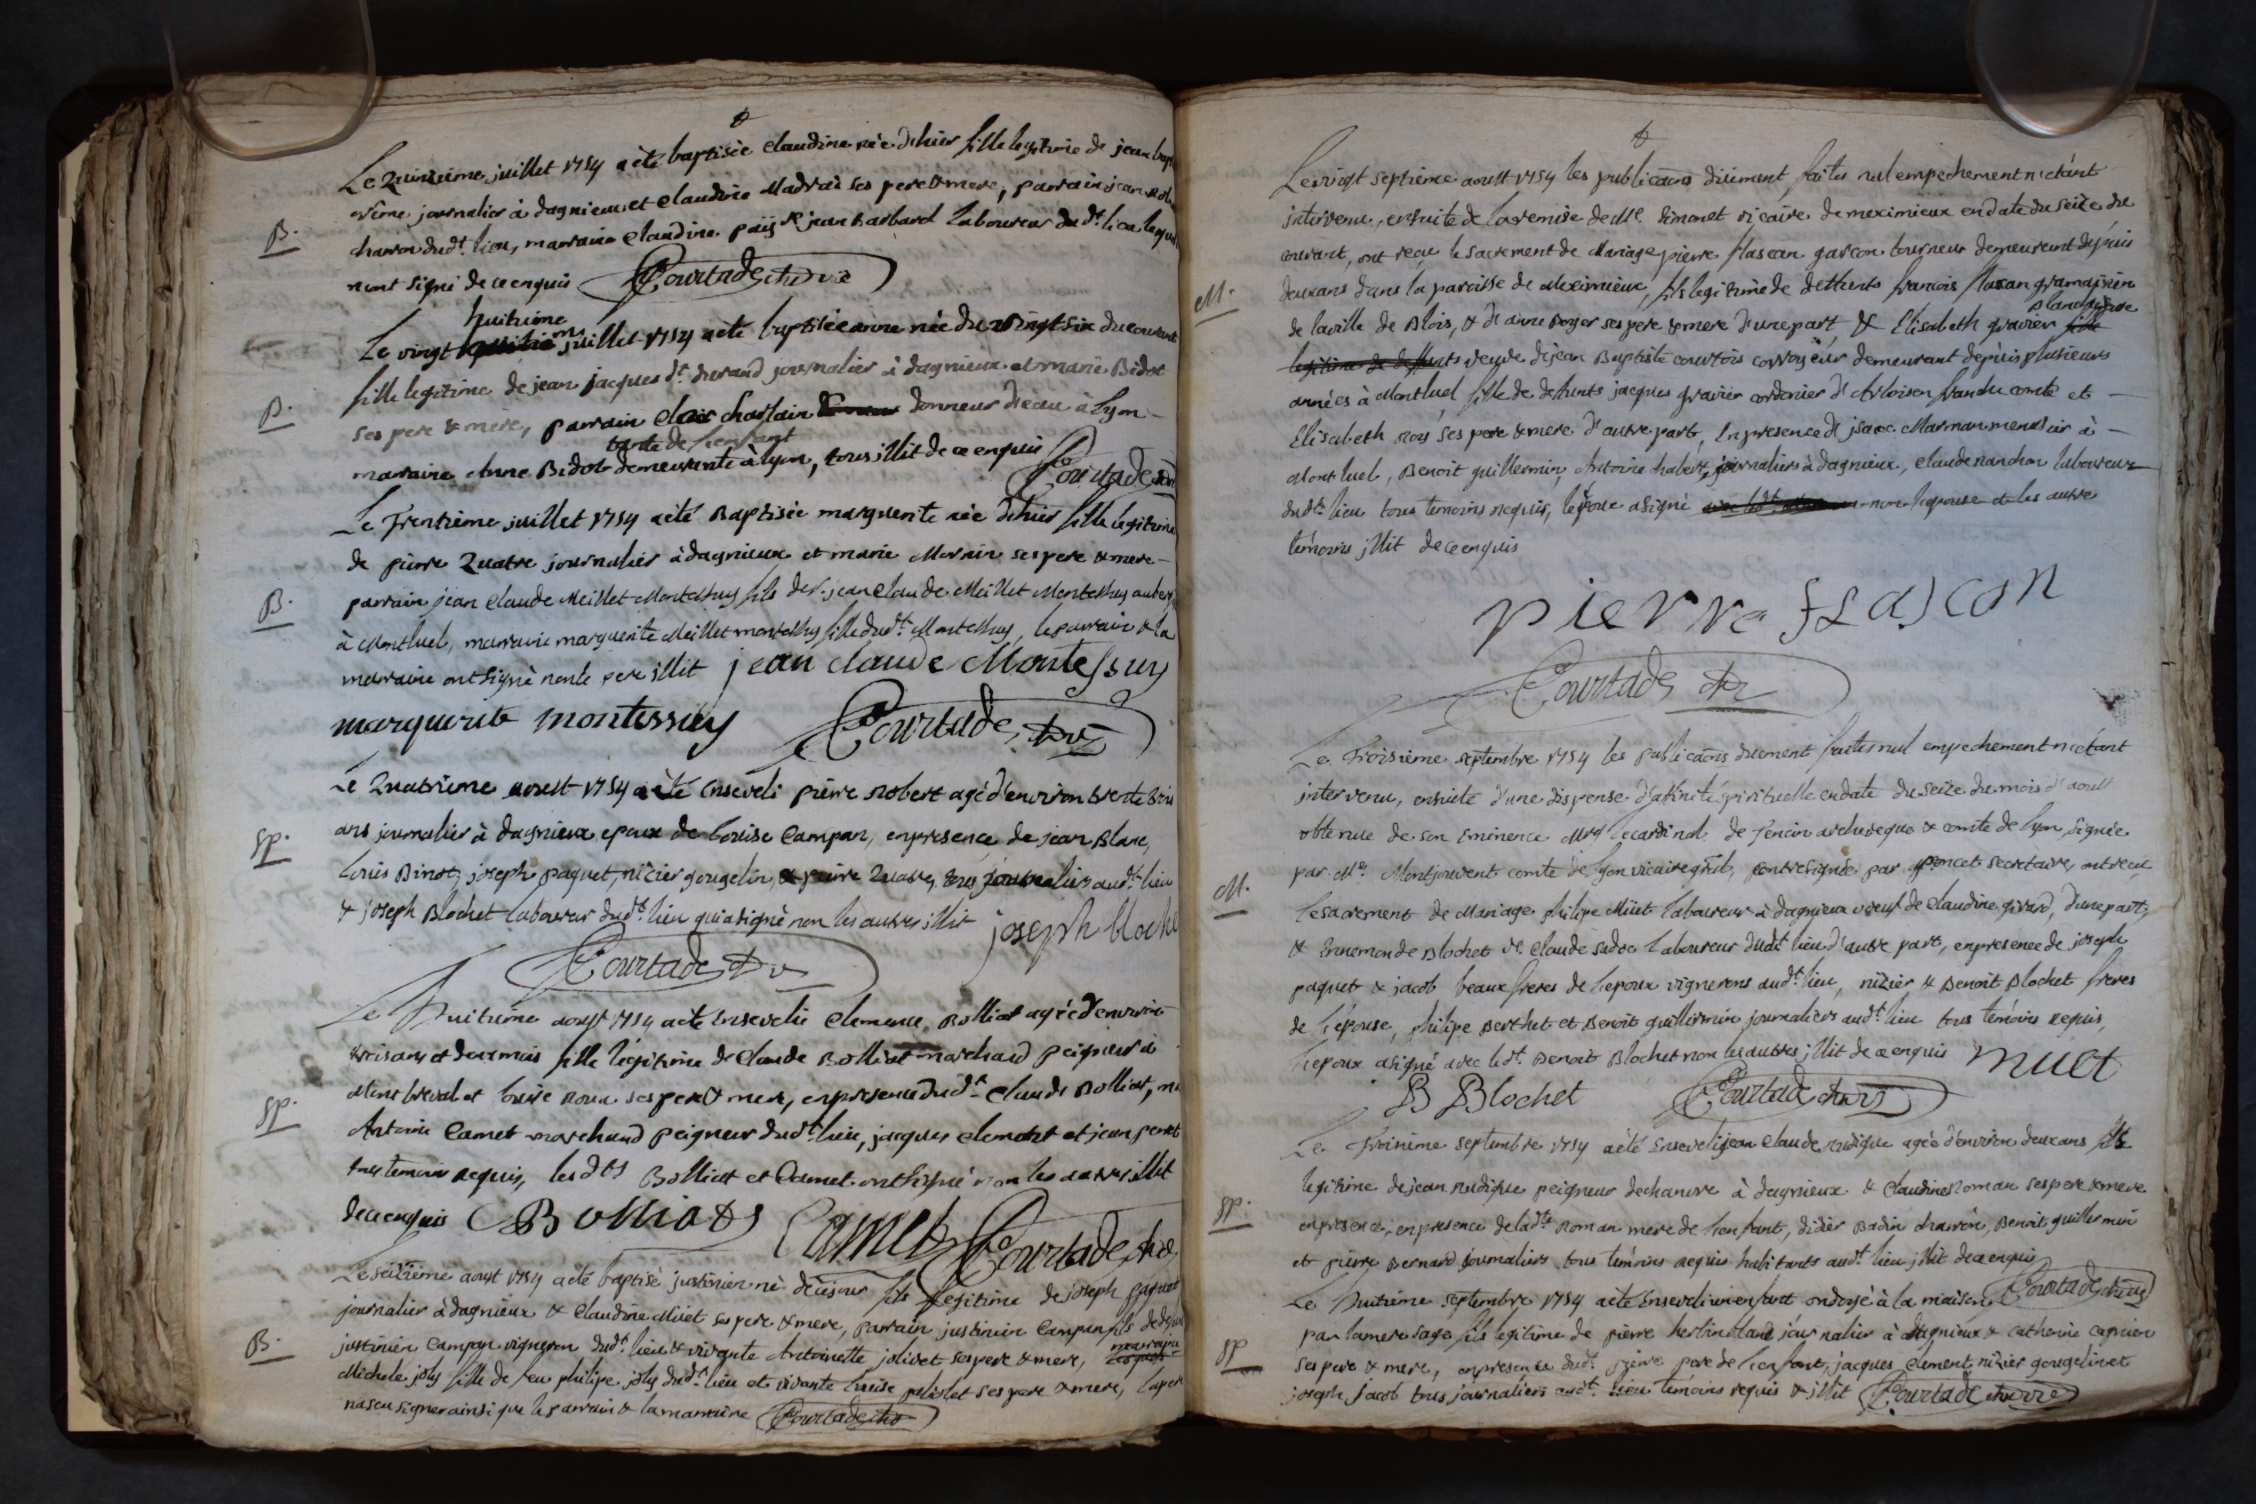 Le Quinzieme juillet 1754 a èté baptisée Claudine née d'hier fille legitime de jean
journalier à dagnieux et Claudine Madras ses pere & mere, parrain jean
B.
charron dud.t lieu, marraine Claudine pays jean Barbard laboureur du d.t lieu
n'ont signé de ce enquis Courtade
huitieme
Le vingt juillet 1754 a èté baptisée anne née du vingt six du courant
fille legitime de jean jacques d.t durand journalier à dagnieux et marie Bidot
B.
ses pere & mere, parrain donneur d'eau à Lyon
tante de l'enfant
marraine Anne Bidot demeurante à Lyon, tous illit de ce enquis Courtade
Le Trentième juillet 1754 a èté Baptisée marguerite née d'hier fille legitime
de pierre Quatre journalier à dagnieux et marie Morain ses pere & mere
B.
parrain jean Claude Meillet Montessuy fils de s.r jean Claude Meillet Montessuy
à Montluel, marraine marguerite Meillet montessuy fille dud.t Montessuy, le parrain & la
marraine ont signè non le pere illit jean claude Montessuy
marguerite montessuy Courtade
Le Quatrième aoust 1754 a èté Enseveli pierre Robert agé d'environ trente trois
ans journalier à dagnieux epoux de Louise Campan, en presence de jean Blanc,
Sp.
Louis Binot, joseph paquet, nizier gougelin, & pierre Quatre, tous journaliers aud.t lieu
& joseph Blochet laboureur dud.t lieu qui a signé non les autres illit joseph bloche
Courtade
Le Huitième aoust 1754 a èté Ensevelie Clemence Bolliat agée d'environ
trois ans et deux mois fille légitime de Claude Bolliat marchand peigneur à
Montluel et Louise Roux ses pere & mere, en presence dud.t Claude Bolliat,
Sp.
Antoine Camet marchand peigneur dud.t lieu, jacques Clement et jean perret
tous temoins requis, les d.ts Bolliat et Camet ont signé non les autres illit
de ce enquis Bolliat Camet Courtade
Le seizième aoust 1754 a èté baptisé justinien né de ce jour fils legitime de joseph paquet
journalier à dagnieux & Claudine Muet ses pere & mere, parrain justinien Campan fils de
B.
justinien Campan vigneron dud.t lieu & vivante Antoinette jolivet ses pere & mere, marraine
Michele joly fille de feu philipe joly dud.t lieu et vivante Louise ses pere & mere, le pere
n'a sçu signer ainsi que le parrain & la marraine Courtade
Le vingt septième aoust 1754 les publicaons düement faites nul empechement n'etant
intervenu, ensuite de la remise de M.e Simonet vicaire de meximieux en date du seize du
courant, ont reçu le sacrement de Mariage pierre flascon garçon tourneur demeurant depuis
M.
deux ans dans la paroisse de Meximieux, fils legitime de deffunts francois flascon
de la ville de Blois, & d'anne Boyer ses pere & mere d'une part, & Elisabeth gravier
veuve de jean Baptiste courtois corroyeur demeurant depuis plusieurs
années à Montluel fille de deffunts jacques gravier cordonier d'Arloison franche comté et
Elisabeth ses pere & mere d'autre part, En presence d'isaac Marman menusier à
Montluel, Benoit guillermin, Antoine chabert, journaliers à dagnieux, Claude nanchon laboureur
dud.t lieu tous temoins requis, l'époux a signé non l'epouse et les autres
témoins illit de ce enquis
pierre flascon
Courtade
Le Troisieme septembre 1754 les publicaons düement faites nul empechement n'etant
intervenu, ensuite d'une dispense d'afinité spirituelle en date du seize du mois d'aoust
obtenue de son Eminence Mgr le cardinal de Tencin archeveque & comte de Lyon, signée
par M.e Montjouvent comte de Lyon vicaire gñal, contresignée par poncet secretaire, ont reçu
M.
le sacrement de Mariage philipe Müet laboureur à dagnieux veuf de Claudine girard, d'une part,
& Ennemonde Blochet v.e Claude laboureur dudt lieu d'autre part, en presence de joseph
paquet & jacob beaux freres de l'epoux vignerons aud.t lieu, nizier & Benoit Blochet freres
de l'épouse, philipe Berthet et Benoit guillermin journaliers aud.t lieu tous témoins requis,
l'epoux a signé avec led.t Benoit Blochet non les autres illit de ce enquis muet
B Blochet Courtade
Le Troisième septembre 1754 a èté Enseveli jean Claude rudique agée d'environ deux ans fils
legitime de jean rudique peigneur de chanvre à dagnieux & Claudine Roman ses pere & mere
Sp.
en presence, en presence de lad.te Roman mere de l'enfant, didier Badin charron, Benoit guillermin
et pierre Bernard journaliers tous temoins requis habitants aud.t lieu illit de ce enquis
Courtade
Le Huitième septembre 1754 a èté Enseveli un enfant ondoyé à la maison
par la mere sage fils legitime de pierre journalier à dagnieux & Catherine
Sp
ses pere & mere, en presence dud.t pierre pere de l'enfant, jacques Clement, nizier gougelin et
joseph jacob tous journaliers aud.t lieu temoins requis & illit Courtade